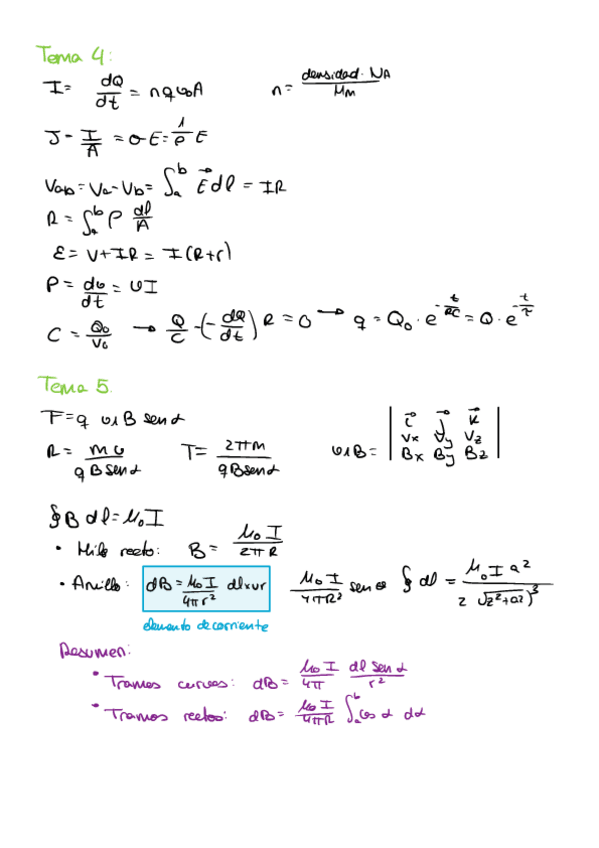 Tema 4:
I = dQ/dt = n q v A    n = densidad · NA / Mm
J = I/A = σ E = 1/ρ E
Vab = Va - Vb = ∫_a^b E⃗ dl = IR
R = ∫_a^b ρ dl/A
ε = V + IR = I (R+r)
P = dv/dt = v I
C = Q₀/V₀ → Q/C - (-dQ/dt) R = 0 → q = Q₀ · e^(-t/RC) = Q · e^(-t/τ)
Tema 5.
F = q v ∧ B sen α
R = m v / q B sen α    T = 2πm / q B sen α    v ∧ B = | i⃗ j⃗ k⃗
Vx Vy Vz
Bx By Bz |
∮ B dl = μ₀ I
• Hilo recto: B = μ₀ I / 2πR
• Anillo: dB = μ₀ I / 4πr² dl × ur    μ₀ I / 4πR² sen θ ∮ dl = μ₀ I a² / 2 √(z²+a²)³
elemento de corriente
Resumen:
• Tramos curvos: dB = μ₀ I / 4π dl sen α / r²
• Tramos rectos: dB = μ₀ I / 4πR ∫_a^b cos α dα